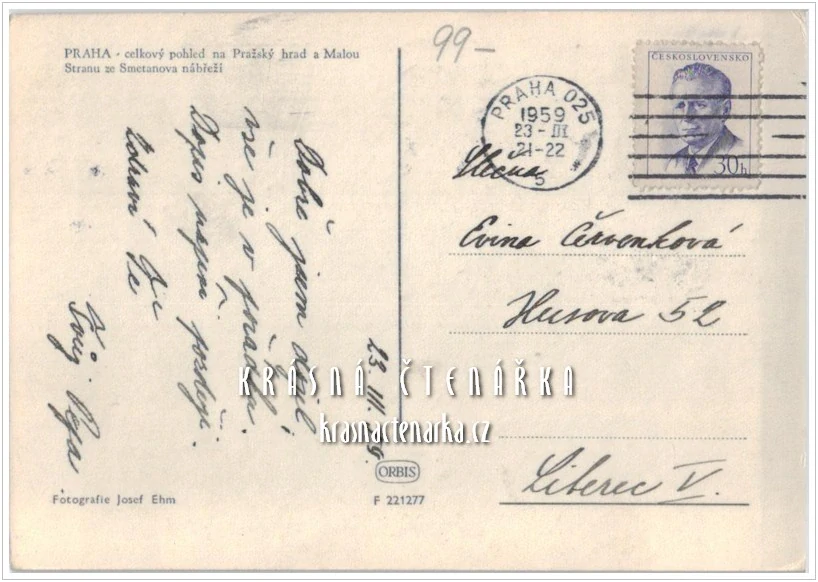 PRAHA - celkový pohled na Pražský hrad a Malou
Stranu ze Smetanova nábřeží
99-
PRAHA 025
1959
23-III
21-22
5
ČESKOSLOVENSKO
30h
Slečna
Evina Červenková
Husova 52
Liberec V.
23. III. 59.
Dobře jsem dojel
vše je v pořádku.
Dopis napíši později.
Zdraví Tě
Tvůj
KRÁSNÁ ČTENÁŘKA
krasnactenarka.cz
ORBIS
Fotografie Josef Ehm
F 221277